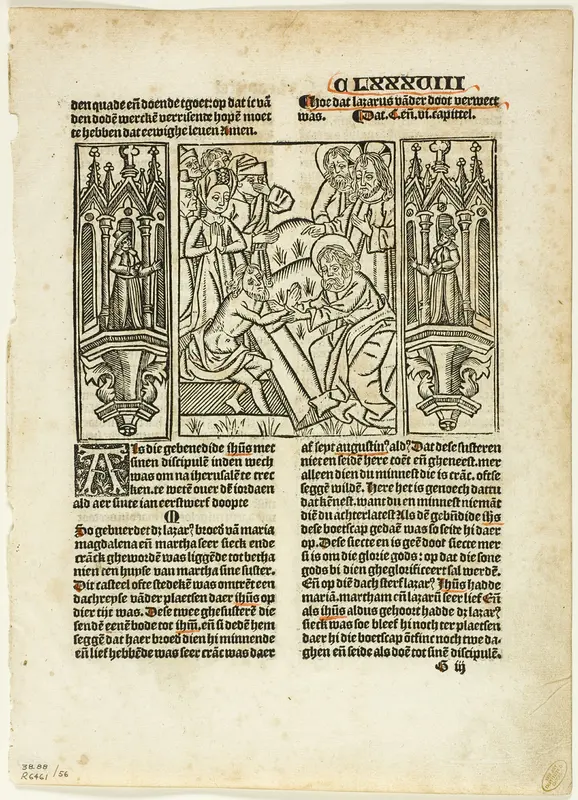 C LXXXVIII
den quade eñ doende tgoet: op dat ic vā
den dodē werckē verrisente hopē moet
te hebben dat eewighe leuen Amen.
¶hoe dat lazarus vāder doot verwect
was. ¶Dat. C. eñ. vi. capittel.
Als die gebenedide ihūs met
sinen discipulē inden wech
was om na iherusalē te trec
ken. te wetē ouer dē iordaen
ald aer sinte ian eerstwerf doopte
¶
So gebuerdet dz lazar⁹ broed vā maria
magdalena eñ martha seer sieck ende
crāck ghewordē was liggēde tot betha
nien een huyse van martha sine suster.
Dit casteel ofte stedekē was omtrēt een
dachreyse vāder plaetsen daer ihūs op
dier tijt was. Dese twee ghesusterē die
sendē eenē bode tot ihm̄. eñ si dedē hem
seggē dat haer broed dien hi minnende
eñ lief hebbēde was seer crāc was daer
af sept augustin⁹ ald⁹ Dat dese susteren
niet en seidē here coēt eñ gheneest. mer
alleen dien du minnest die is crāc. oftse
seggē wildē. Here het is genoech dattu
dat kēnest. want du en minnest niemāt
diē du achterlatest Als dē gebñdide ihs
dese boetscap gedaē was so seide hi daer
op. Dese siecte en is geē doot siecte mer
si is om die glorie gods: op dat die sone
gods bi dien gheglorificeert sal werdē.
Eñ op diē dach sterf lazar⁹ Jhūs hadde
mariā. martham eñ lazarū seer lief Eñ
als ihūs aldus gehoort hadde dz lazar⁹
sieck was soe bleef hi noch ter plaetsen
daer hi die boetscap ōtfinc noch twe da-
ghen eñ seide als doē tot sinē discipulē.
G iij
38.88
R6461 / 56